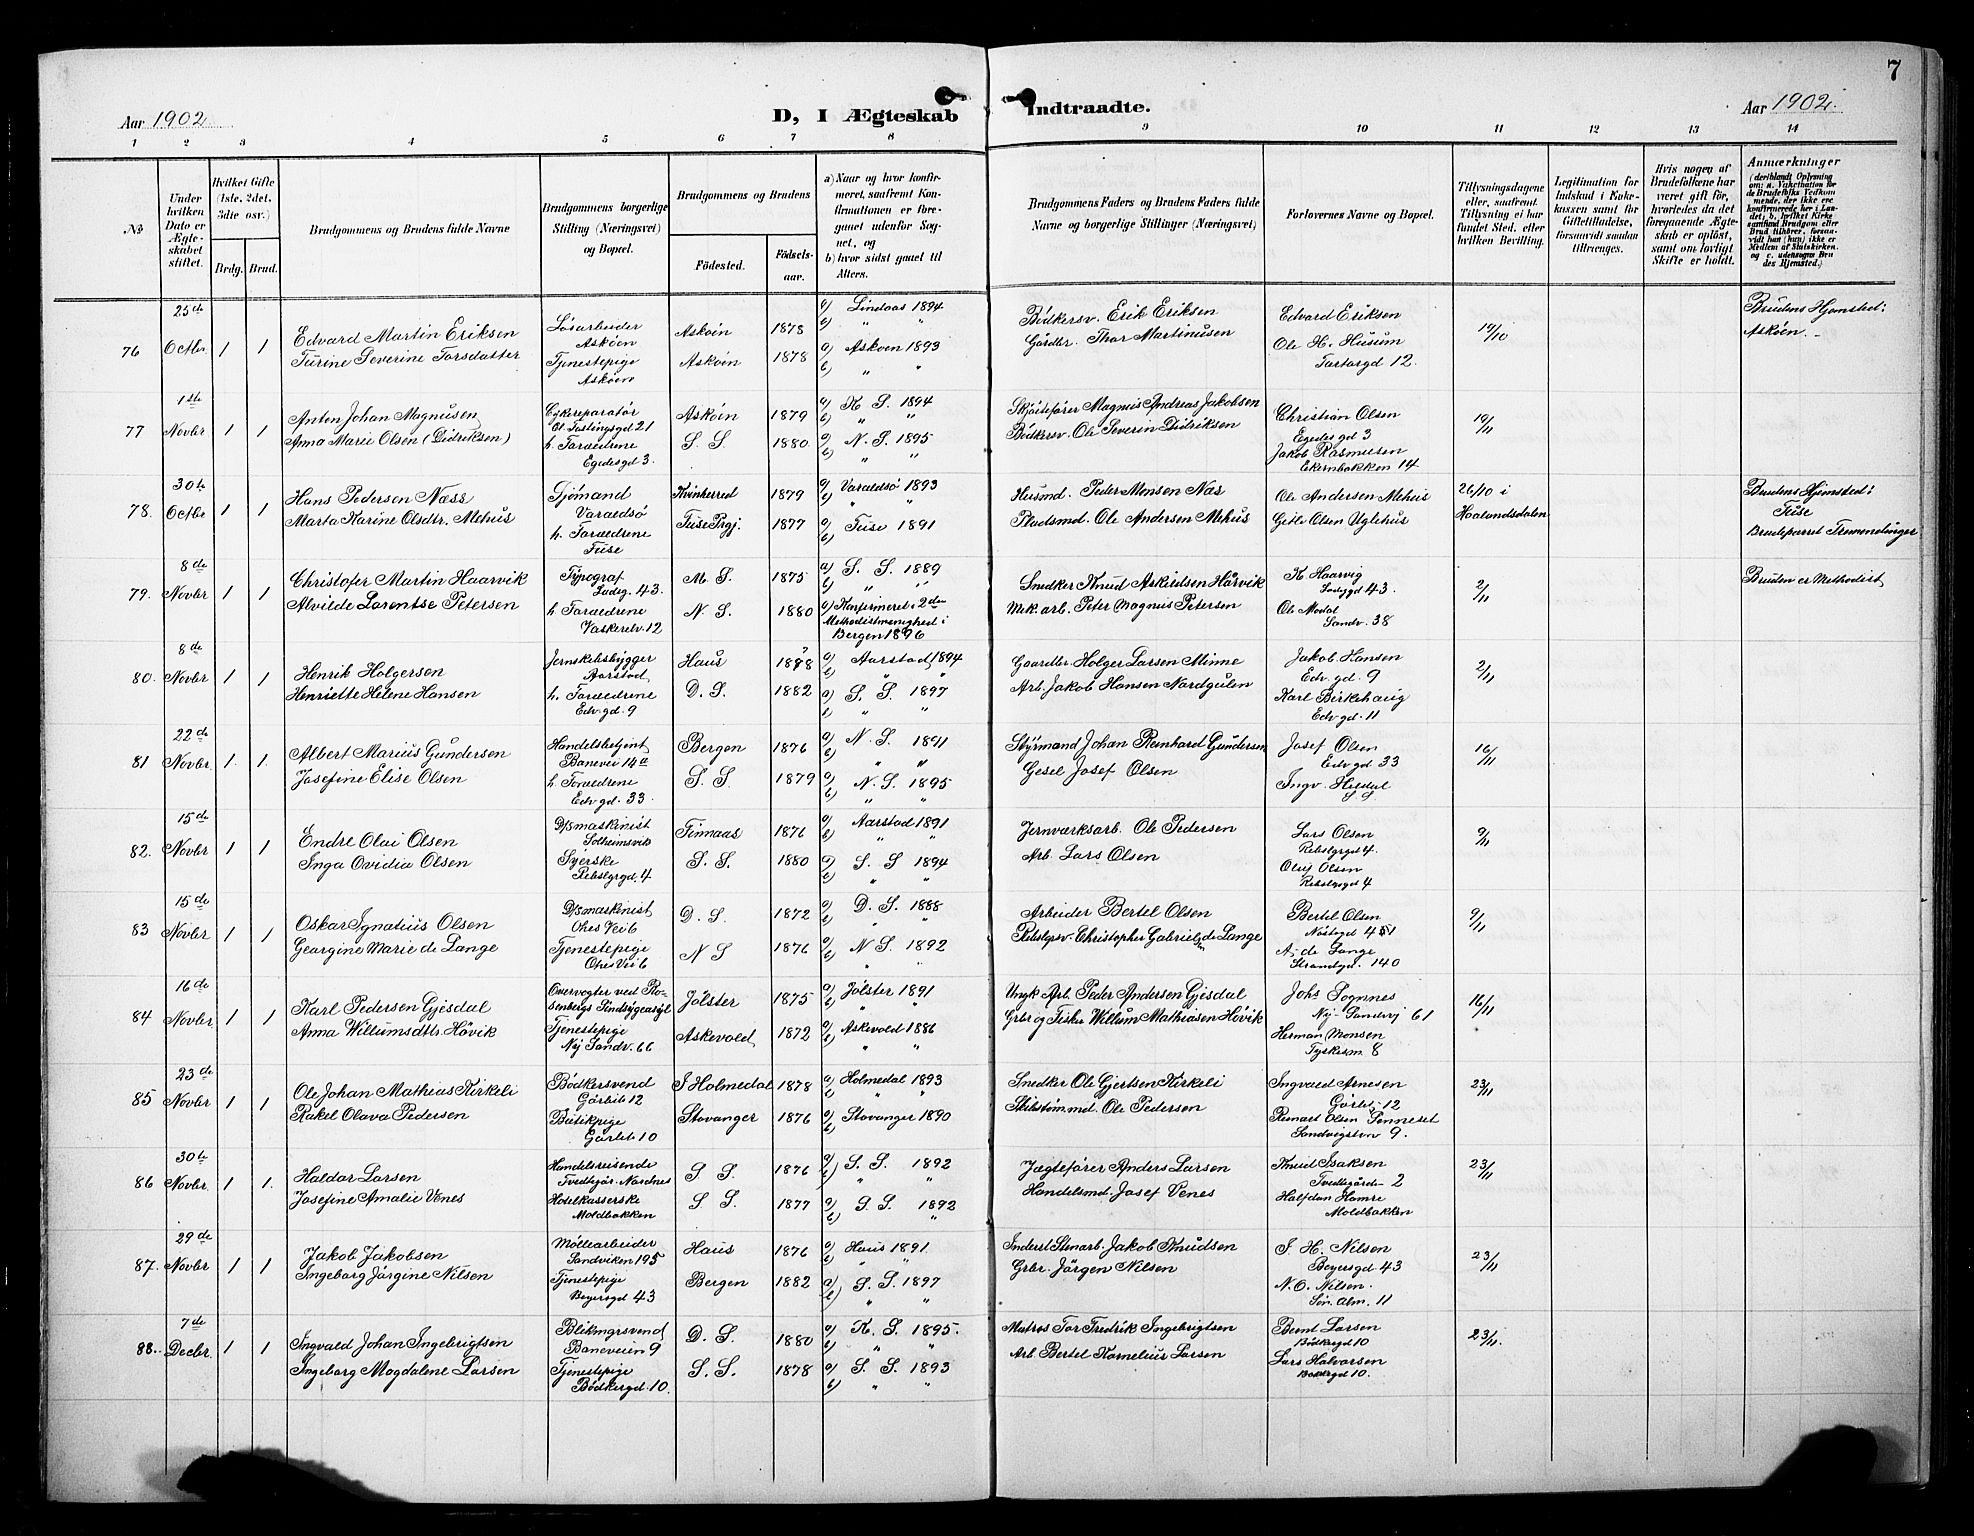 7
Aar 1902.
D, I Ægteskab Indtraadte.
Aar 1902.
1 2 3 4 5 6 7 8 9 10 11 12 13 14
No
Under hvilken Dato er Ægteskabet stiftet.
Hvilket Gifte (1ste, 2det, 3die osv.)
Brdg. Brud.
Brudgommens og Brudens fulde Navne
Brudgommens borgerlige Stilling (Næringsvei) og Bopæl.
Brudgommens og Brudens
Fødested.
Fødselsaar.
a) Naar og hvor konfirmeret, saafremt Konfirmationen er foregaaet udenfor Sognet, og
b) hvor sidst gaaet til Alters.
Brudgommens Faders og Brudens Faders fulde Navne og borgerlige Stillinger (Næringsvei)
Forlovernes Navne og Bopæl.
Tillysningsdagene eller, saafremt Tillysning ei har fundet Sted, efter hvilken Bevilling.
Legitimation for Indskud i Enkekassen samt for Giftetilladelse, forsaavidt saadan tiltrænges.
Hvis nogen af Brudefolkene har været gift før, hvorledes da det foregaaende Ægteskab er opløst, samt om lovligt Skifte er holdt.
Anmærkninger
(deriblandt Oplysning om: a. Vakcination for de Brudefolks Vedkommende, der ikke ere konfirmerede her i Landet; b. hvilket Kirkesamfund Brudgom eller Brud tilhører, forsaavidt han (hun) ikke er Medlem af Statskirken, og c. udensogns Brudes Hjemsted.)
76 25de Octbr. 1 1
Edvard Martin Eriksen
Turine Severine Torsdatter
Løsarbeider Askøen
Tjenestepige Askøen
Askøen 1878 a) Lindaas 1894 b) " "
Askøen 1878 a) Askøen 1893 b) " "
Bødkersv. Erik Eriksen
Gårdbr. Thor Martinusen
Edvard Eriksen
Ole H. Husum
Tartargd 12.
19/10
Brudens Hjemsted: Askøen.
77 1ste Novbr 1 1
Anton Johan Magnusen
Anna Marie Olsen (Didriksen)
Cykereparatør
21
h. Forældrene
Egedesgd 3.
Askøen 1879 a) K. S. 1894 b) " "
S. S. 1880 a) N. S. 1895 b) " "
Skjøitefører Magnus Andreas Jakobsen
Bødkersv. Ole Severin Didriksen
Christian Olsen
Egedes gd 3
Jakob Rasmussen
Ekernbakken 14
19/11
78. 30te Octbr 1 1
Hans Pederson Næss
Marta Karine Olsdtr. Mehus
Sjømand
Varaldsø
h. Forældrene
Fuse
Kvinherred 1879 a) Varaldsø 1893 b) "
Fuse Prgj. 1877 a) Fuse 1891 b)
Husmd. Peder Monsen Næs
Pladsmd. Ole Andersen Mehus
Ole Andersen Mehus
Gitle Olsen Uglehus
26/10 i Haalandsdalen
Brudens Hjemsted: Fuse
Brudeparret Fremmedlinger
79. 8de Novbr 1 1
Christofer Martin Haarvik
Alvilde Lorentse Petersen
Typograf
Ladeg. 43.
h. Forældrene
Vaskerelv. 12
M. S. 1875 a) S. S. 1889 b) "
N. S. 1880 a) Konfirmeret i 2den Methodistmenighed i Bergen 1896
Snedker Knud Askildsen Hårvik
Mek. arb. Peter Magnus Petersen
K. Haarvig
Ladeggd 43.
Ole Modal
Sandv. 38
2/11
Bruden er Methodist
80. 8de Novbr 1 1
Henrik Holgersen
Henriette Helene Hansen
Jernskibsbygger
Aarstad
h. Forældrene
Edv. gd. 9
Haus 1878 ? a) Aarstad 1894 b) " "
D. S. 1882 a) S. S. 1897 b) " "
Gaardbr. Holger Larsen Minne
Arb. Jakob Hansen Nordgulen
Jakob Hansen
Edv. gd. 9
Karl Birkehaug
Edv. gd. 11
2/11
81 22de Novbr. 1. 1.
Albert Marius Gundersen
Josefine Elise Olsen
Handelsbetjent
Banevei 14a
h. Forældrene
Edv. gd. 33.
Bergen 1876 a) N. S. 1891 b) " "
S. S. 1879 a) N. S. 1895 b) " "
Styrmand Johan Reinhard Gundersen
Gesel Josef Olsen
Josef Olsen
Edv. gd 33
Ingv. Hisdal
S S
16/11
82. 15de Novbr 1 1
Endre Olai Olsen
Inga Ovidia Olsen
D/Smaskinist
Solheimsvik
Syerske
Rebslgrgd. 4
Finnaas 1876 a) Aarstad 1891 b) " "
S. S. 1880 a) S. S 1894 b) " "
Jernværksarb. Ole Pedersen
Arb. Lars Olsen
Lars Olsen
Rebslgrgd 4.
Oluf Olsen
Rebslgrgd 4
9/11
83 15de Novbr 1 1
Oskar Ignatius Olsen
Georgine Marie de Lange
D/Smaskinist
Ohes Vei 6
Tjenestepige
Ohes Vei 6
D. S. 1872 a) D. S. 1888 b) "
N S 1876 a) N S. 1892 b) "
Arbeider Bertel Olsen
Rebslgrsv. Christopher Gabrielsen de Lange
Bertel Olsen
Nøstegd 451
A. de Lange
Strandgd. 140
9/11
84 16de Novbr 1 1
Karl Pedersen Gjesdal
Anna Willumsdtr. Høvik
Overvogter ved Rosenbergs Sindsygeasyl
Tjenestepige
Ny Sandv. 66
Jølster 1875 a) Jølster 1891 b) "
Askevold 1872 a) Askevold 1886 b) " "
Ungk. Arb. Peder Andersen Gjesdal
Grbr og Fisker Willum Mathiasen Høvik
Johs Sognnes
Ny Sandvj 61
Herman Monsen
Tyskesm. 8
16/11
85 23de Novbr 1 1
Ole Johan Mathias Kirkeli
Rakel Olava Pedersen
Bødkersvend
Gårlit: 12
Butikpige
Gårlit: 10
I Holmedal 1878 a) Holmedal 1893 b) " "
Stavanger 1876 a) Stavanger 1890 b)
Snedker Ole Gjertsen Kirkeli
Skibstømmd. Ole Pedersen
Ingvald Arnesen
Gårlit. 12
Rasmus Olsen Tenneset
Sandvigstvn 9.
23/11
86 30te Novbr. 1 1.
Haldor Larsen
Josefine Amalie Venes
Handelsreisende
Tvedtegår. Nordnes
Hotelkasserske
Moldbakken
S. S. 1876 a) S. S. 1892 b) " "
S. S. 1877 a) S. S. 1892 b) "
Jægtefører Anders Larsen
Handelsmd. Josef Venes
Knud Isaksen
Tvedtegården 2
Halfdan Hamre
Moldbakken
23/11
87. 29de Novbr 1 1
Jakob Jakobsen
Ingeborg Jørgine Nilsen
Møllearbeider
Sandviken 195
Tjenestepige
Beyersgd 43
Haus 1876 a) Haus 1891 b) " "
Bergen 1882 a) S. S. 1897 b) " "
Inderst Stenarb. Jakob Knudsen
Grbr. Jørgen Nilsen
J. H. Nilsen
Beyersgd 43
N. O. Nilsen.
Søn. Alm. 11
23/11
88. 7de Decbr. 1 1
Ingvald Johan Ingebrigtsen
Ingeborg Magdalene Larsen
Blikmgrsvend
Baneveien 9
Tjenestepige
Bødkergd. 10.
D. S. 1880 a) K. S. 1895. b) " "
S. S. 1878 a) S. S. 1893 b) " "
Matros Tor Fredrik Ingebrigtsen
Arb. Bertel Kornelius Larsen
Bernt Larsen
Bødkergd 10
Lars Halvorsen
Bødkergd 10.
23/11.